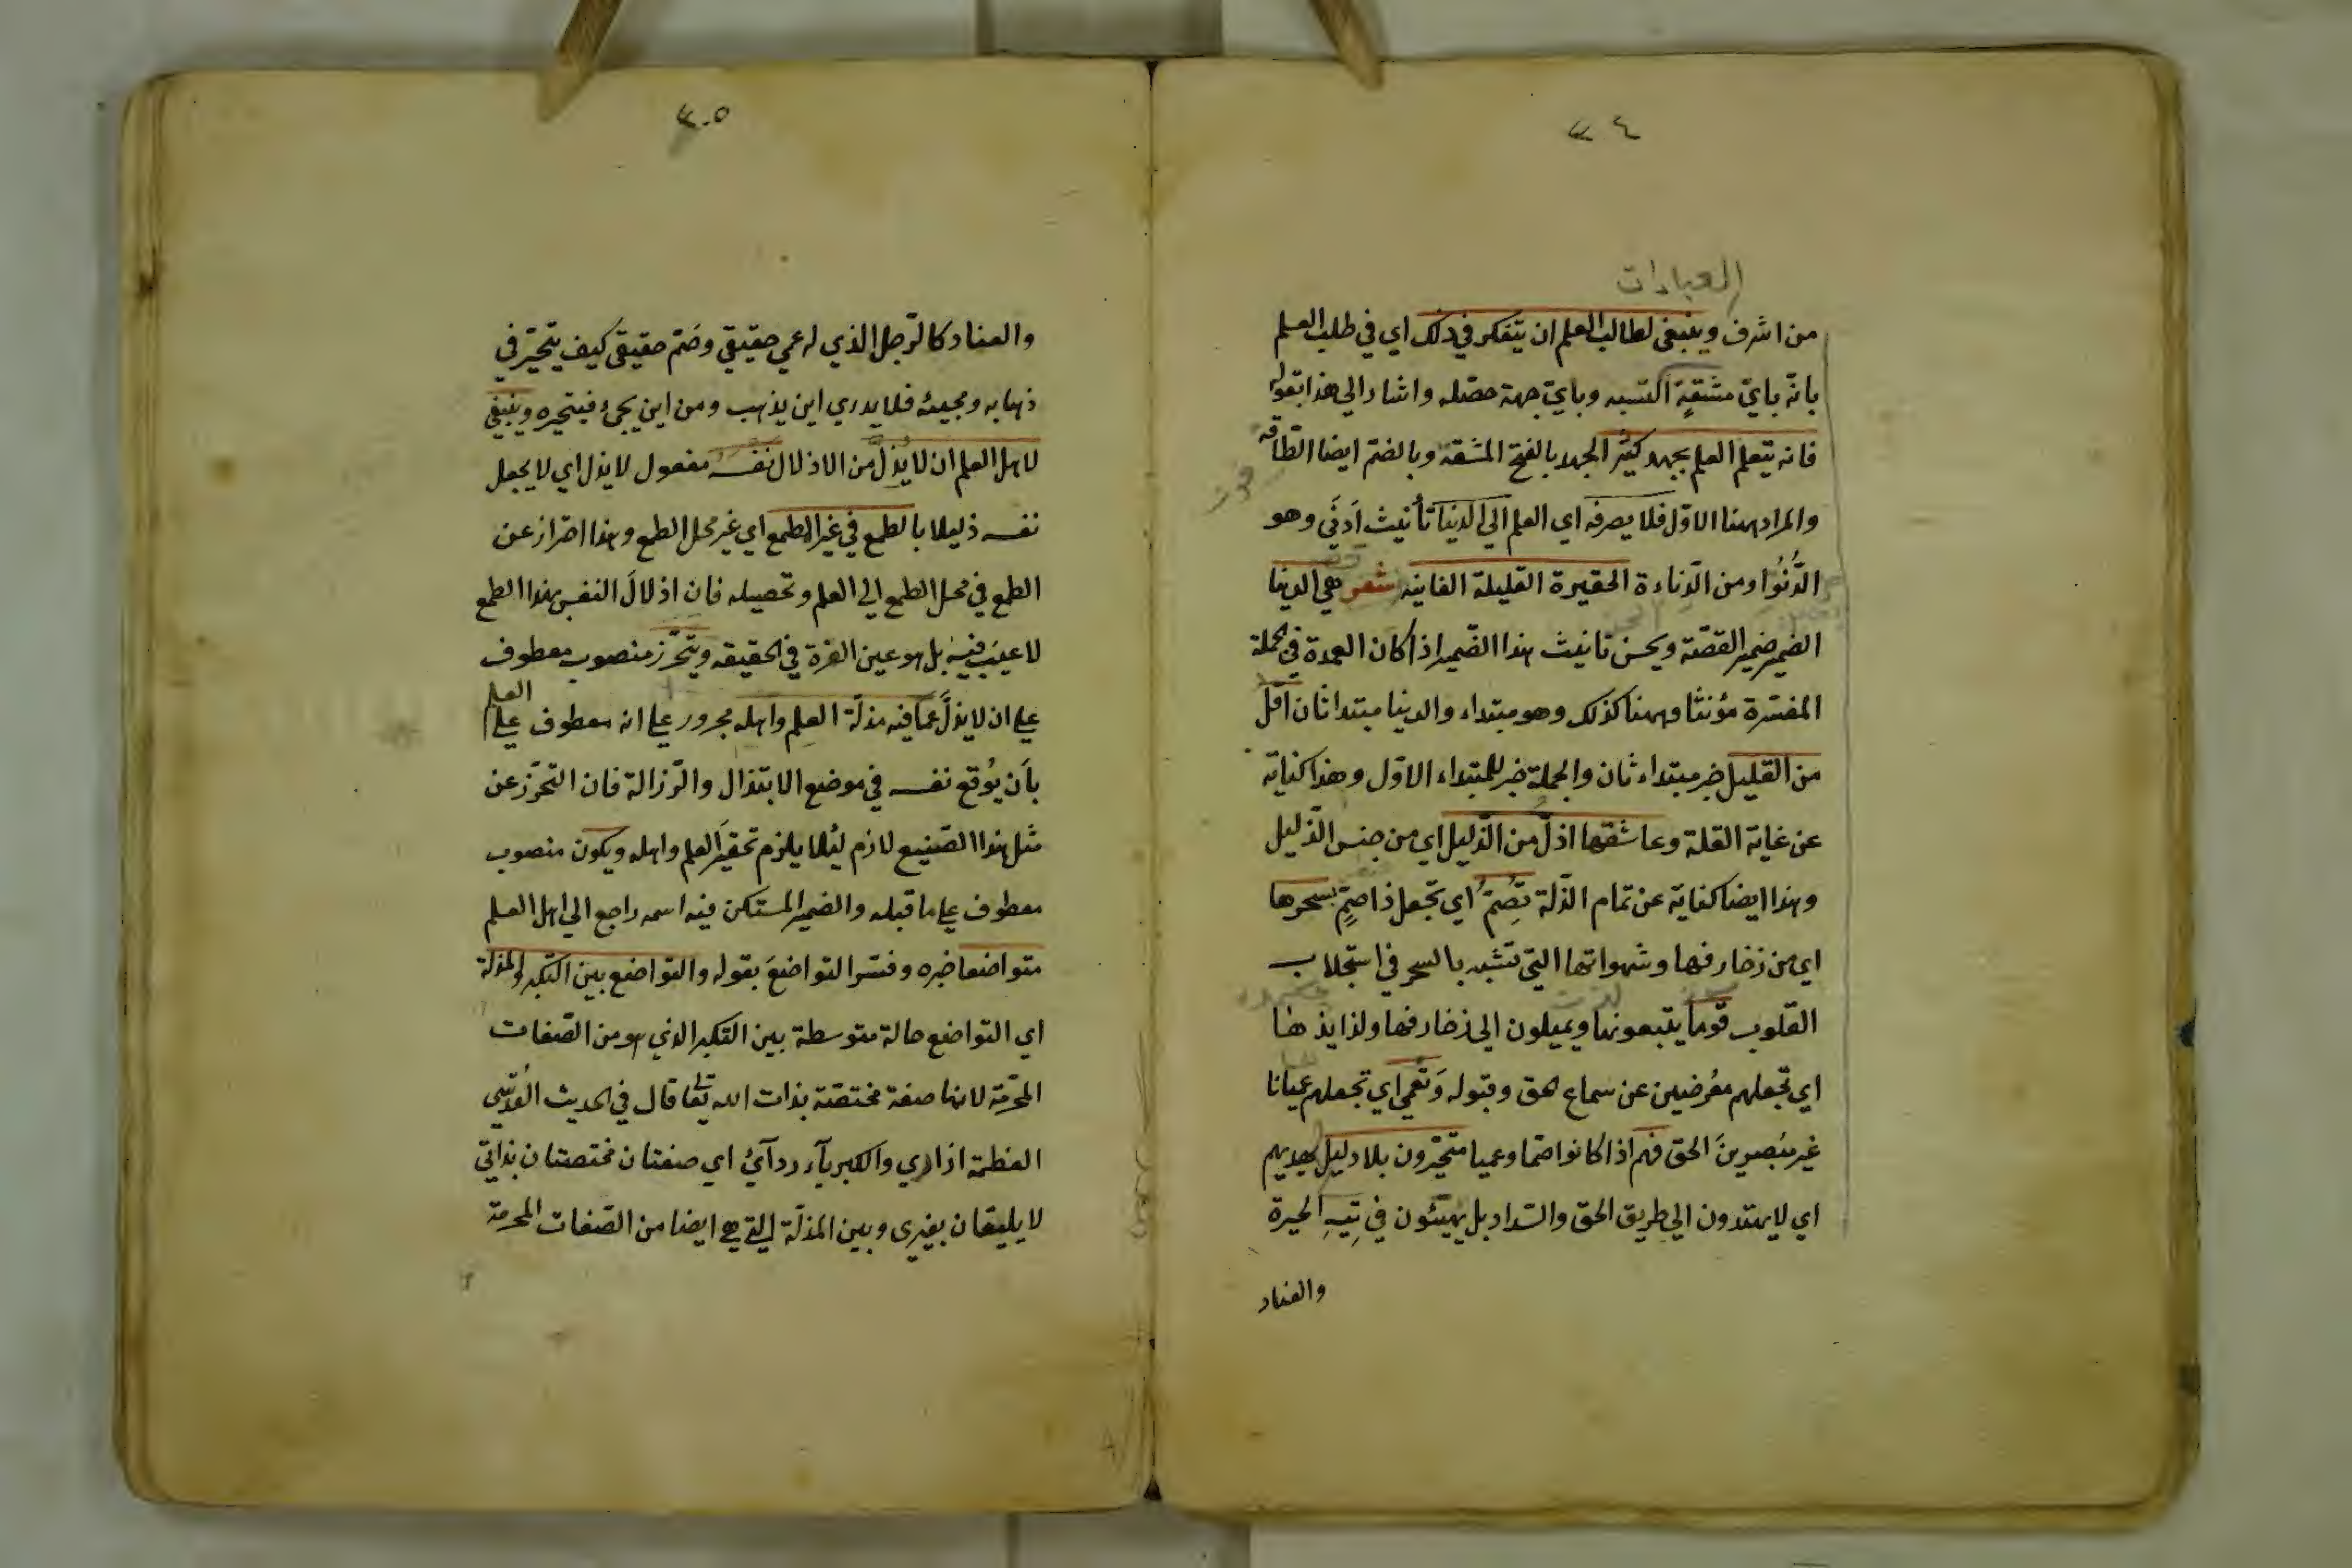 ٢٤
العبادات
من اشرف وينبغى لطالب العلم ان يتفكر في ذلك اى في طلب العلم
بانه باىّ مشقةٍ اكتسبه وباىّ جهة حصّله واشار الى هذا بقوله
فانه يتعلم العلم بجهد كثير الجهد بالفتح المشقة وبالضم ايضا الطّاقة
والمراد ههنا الاوّل فلا يصرفه اى العلم الى الدنيا تأنيث اَدنَى وهو
الدُّنُوّ او من الدّناءة الحقيرة القليلة الفانيه شعر هى الدنيا
الضمير ضمير القصّة ويحسن تانيث هذا الضّمير اذا كان العمدة في الجملة
المفسّرة مؤنثا وههنا كذلك وهو مبتداء والدنيا مبتدا ثان اقلّ
من القليل خبر مبتداء ثان والجملة خبر للمبتداء الاوّل وهذا كناية
عن غاية القلة وعاشقها اذلّ من الذّليل اى من جنس الذّليل
وهذا ايضا كناية عن تمام الذّلة تُصِمّ اى تجعل ذا صمٍ بسحرها
اى من زخارفها وشهواتها التى تشبه بالسحر في استجلاب
القلوب قوما يتبعونها ويميلون الى زخارفها ولذايذها
اى تجعلهم معُرضين عن سماع الحق وقبوله وَتُعمى اى تجعلهم عميانا
غير مُبصرينَ الحق فهم اذا كانوا صمّا وعميا متحيّرون بلا دليل يهديهم
اى لا يهتدون الى طريق الحق والسّداد بل يهيئون في تِيهِ الحيرة
والعناد
٢٠٥
والعناد كالرّجل الذي له عمى حقيقي وصَمّ حقيقى كيف يتحيّر في
ذهابه ومجيئه فلا يدري اين يذهب ومن اين يجئ فيتحيره وينبغي
لاهل العلم ان لا يُذِلّ من الاذلال نفسه مفعول لا يذل اى لا يجعل
نفسه ذليلا بالطمع في غير المطمع اى غير محل الطمع وهذا احتراز عن
الطمع في محل الطمع الى العلم وتحصيله فان اذلالَ النفس بهذا الطمع
لا عيبَ فيه بل هو عين العزة في الحقيقه ويتحرّز منصوب معطوف
على ان لا يذلَّ عمّا فيه مذلّة العلم واهله مجرور على انه معطوف على العلم
بأن يُوقع نفسه في موضع الابتذال والرّزالة فان التحرّز عن
مثل هذا الصّنيع لازم لئلا يلزم تحقيَر العلم واهله ويكون منصوب
معطوف على ما قبله والضمير المستكن فيه اسمه راجع الى اهل العلم
متواضعا خبره وفسّر التواضعَ بقوله والتواضع بين التكبر والمذلة
اى التواضع حالة متوسطة بين التكبر الذي هو من الصّفات
المحرّمة لانها صفة مختصّة بذات الله تعالى قال في الحديث القُدسّى
العظمة ازارى والكبرياء ردآئ اى صفتان مختصتان بذاتى
لا يليقان بغيرى وبين المذلّة التى هى ايضا من الصّفات المحرمة